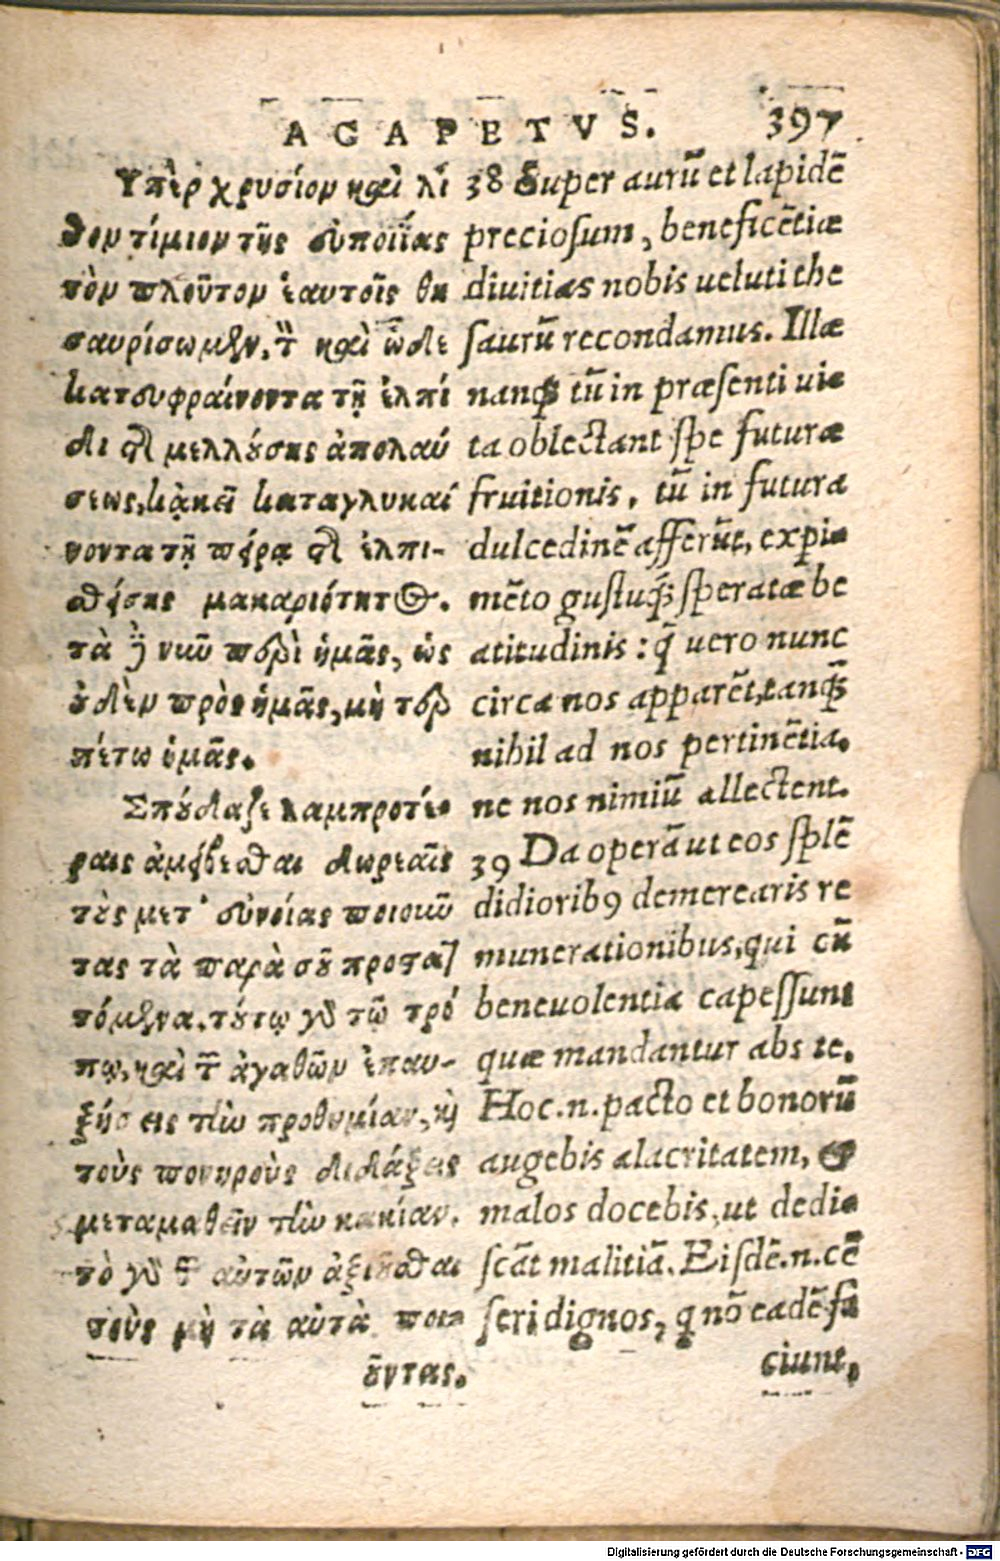 AGAPETVS. 397
Ὑπὲρ χρυσίον καὶ λί
θον τίμιον τῆς εὐποιΐας
τὸν πλοῦτον ἑαυτοῖς θη
σαυρίσωμεν. τ̃ καὶ ὧδε
κατευφραίνοντα τῇ ἐλπί
δι τ̃ μελλούσης ἀπολαύ
σεως, κᾀκεῖ καταγλυκαί
νοντα τῇ πείρᾳ τ̃ ἐλπι-
σθείσης μακαριότητος.
τὰ ϳ̃ νιῦ περὶ ἡμᾶς, ὡς
ȣδὲν πρὸς ἡμᾶς, μὴ τερ
πέτω ὑμᾶς.
Σπȣδαζε λαμπροτέ-
ραις ἀμείβεσθαι δωρεαῖς
τȣς μετ' εὐνοίας ποιοιῦ
τας τὰ παρὰ σȣ προταἸ
τόμενα. τȣτῳ γὸ τῷ τρό
πῳ, καὶ τ̃ ἀγαθῶν ἐπαυ-
ξήσεις τὴν προθυμίαν, κὴ
τοὺς πονηροὺς διδάξεις
μεταμαθεῖν τὴν κακίαν.
τὸ γὸ τ̃ αὐτῶν ἀξιȣσθαι
τοὺς μὴ τὰ αὐτὰ ποι-
ȣντας.
38 Super aurũ et lapidẽ
preciosum, beneficẽtiæ
diuitias nobis ueluti the
saurũ recondamus. Illæ
nanq; tũ in præsenti ui-
ta oblectant spe futuræ
fruitionis, tũ in futura
dulcedinẽ afferũt, expi-
mẽto gustuq; speratæ be
atitudinis : q̃ uero nunc
circa nos apparẽt, tanq̃
nihil ad nos pertinẽtia.
ne nos nimiũ allectent.
39 Da operã ut eos splẽ
didiorib9 demerearis re
munerationibus, qui cũ
beneuolentia capessunt
quæ mandantur abs te.
Hoc.n.pacto et bonorũ
augebis alacritatem, &
malos docebis, ut dedi-
scãt malitiã. Eisdẽ.n.cẽ
seri dignos, q nõ eadẽ fa
ciunt,
Digitalisierung gefördert durch die Deutsche Forschungsgemeinschaft - DFG